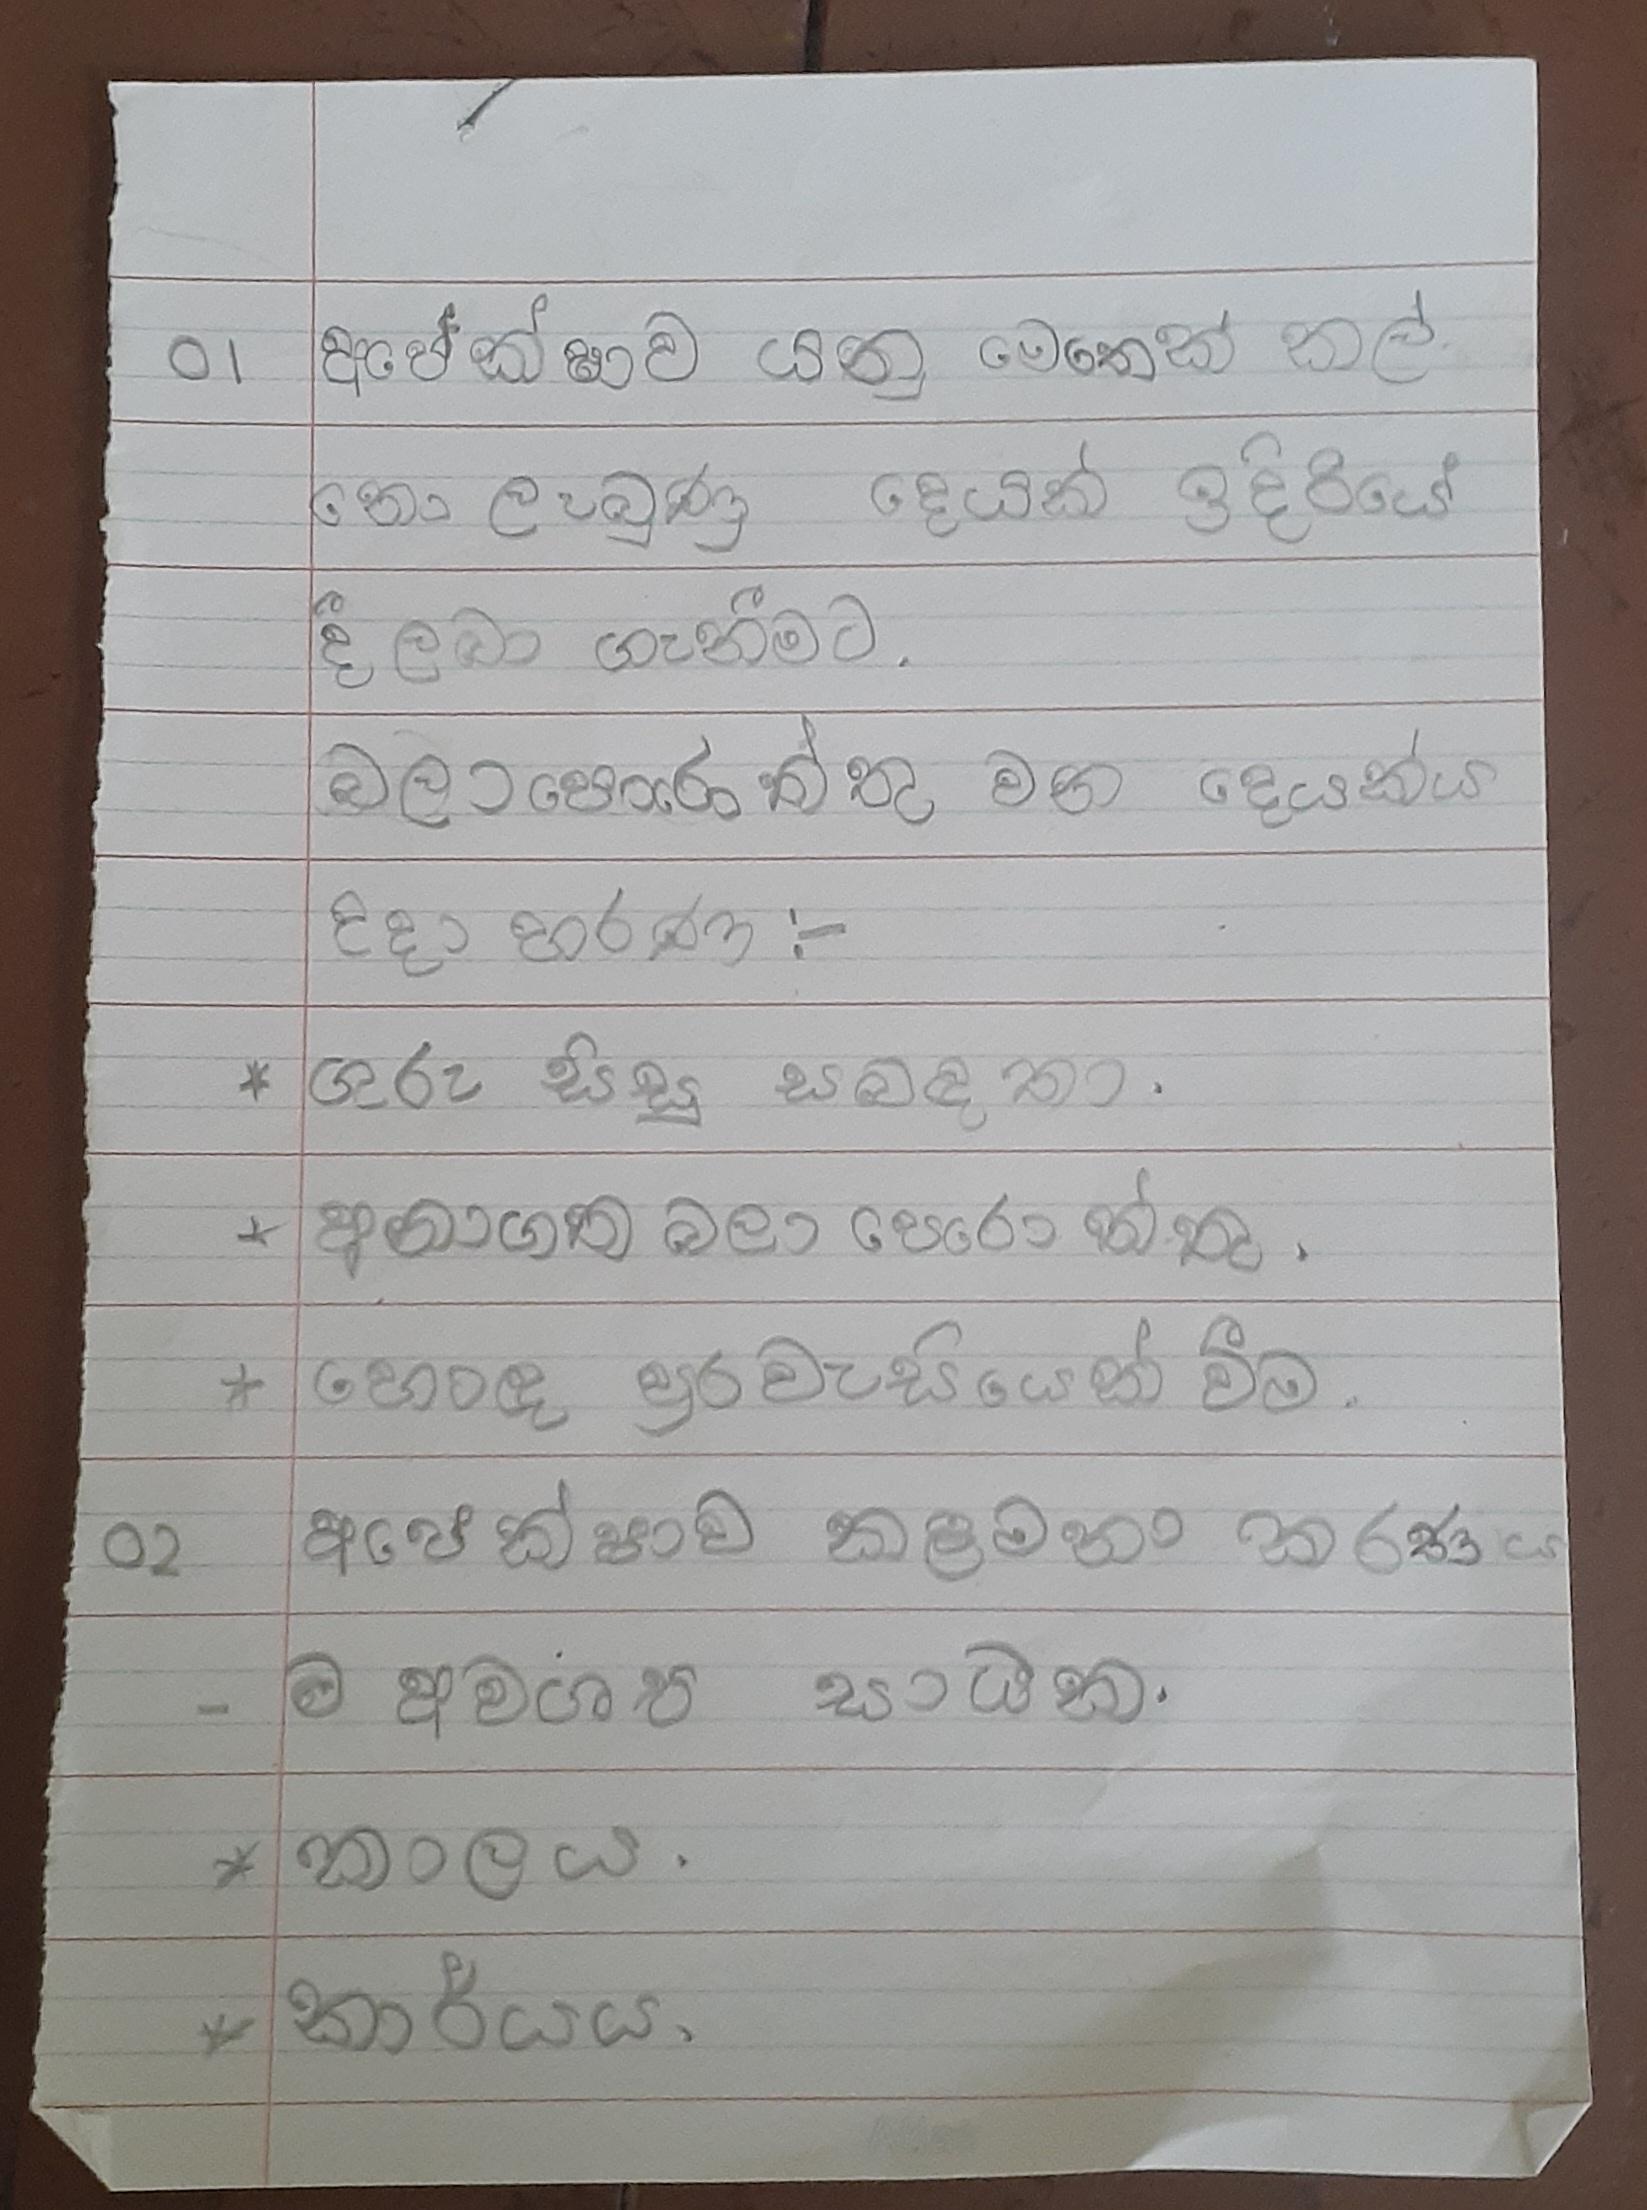 01 අපේක්ෂාව යනු මෙතෙක් කල්
නො ලැබුණු දෙයක් ඉදිරියේ
දී ලබා ගැනීමට.
බලාපොරොත්තු වන දෙයක්ය
උදා හරණ :-
* ගුරු සිසු සබඳතා.
* අනාගත බලා පොරොත්තු.
* හොඳ පුරවැසියෙක් වීම.
02 අපේක්ෂාව කළමනා කරණය
- ම අවශ්‍ය සාධක.
* කාලය.
* කාර්යය.